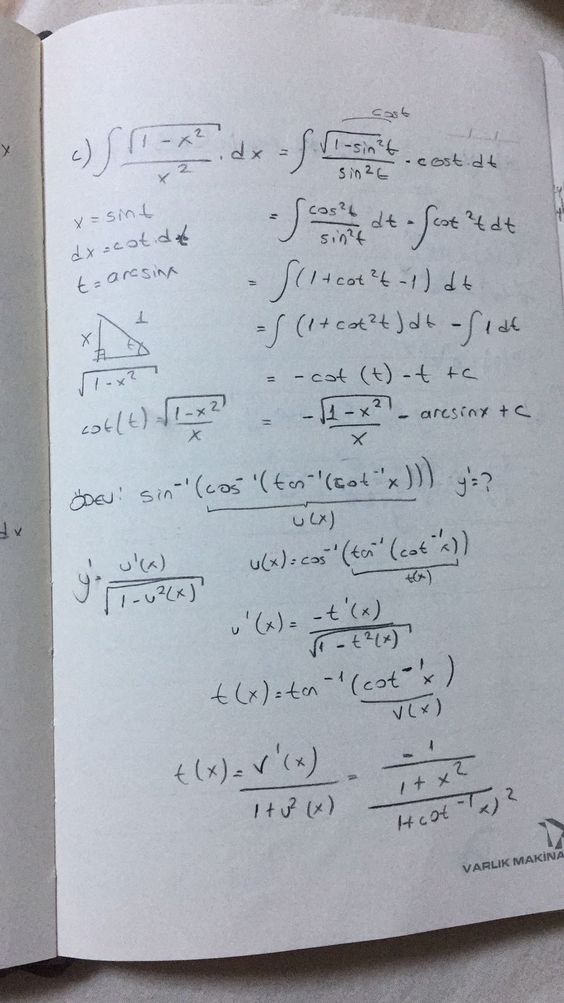 cost
c) ∫ √(1-x²)/x² . dx = ∫ √(1-sin²t)/sin²t . cost dt
x = sint
= ∫ cos²t/sin²t dt = ∫cot²t dt
dx = cot.dt
t = arcsinx
= ∫(1+cot²t-1) dt
x 1 tx
= ∫(1+cot²t)dt - ∫1dt
√(1-x²)
= -cot(t)-t+c
cot(t) = √(1-x²)/x
= -√(1-x²)/x - arcsinx + c
ÖDEV: sin⁻¹(cos⁻¹(tan⁻¹(cot⁻¹x))) y'=?
u(x)
y' = u'(x)/√(1-u²(x))
u(x) = cos⁻¹(tan⁻¹(cot⁻¹x))
t(x)
u'(x) = -t'(x)/√(1-t²(x))
t(x) = tan⁻¹(cot⁻¹x)
v(x)
t(x) = v'(x)/1+v²(x) = -1/1+x² / 1+cot⁻¹x)²
VARLIK MAKİNA
x
dx